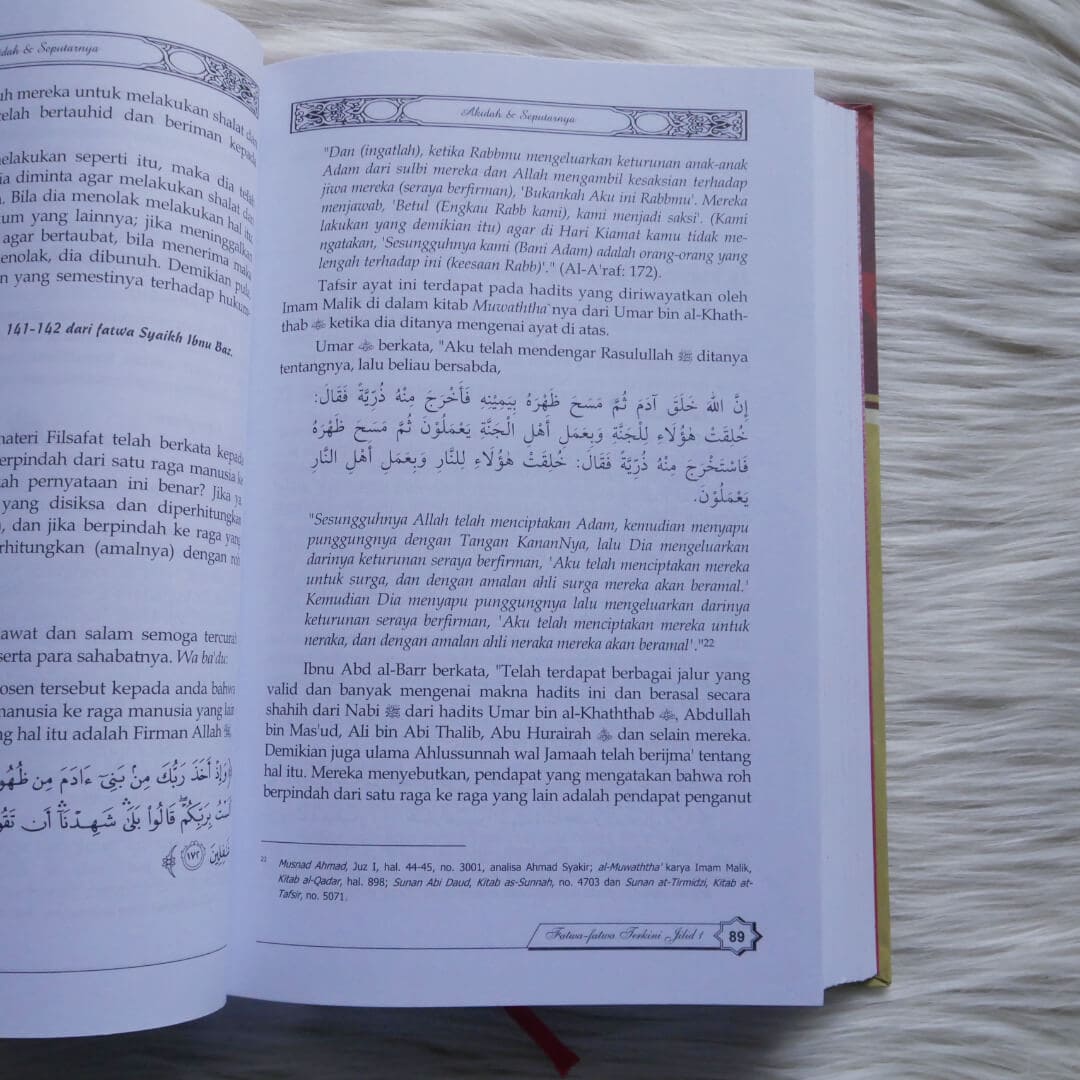 dah & Seputarnya
uh mereka untuk melakukan shalat dan
elah bertauhid dan beriman kepada
elakukan seperti itu, maka dia telah
ia diminta agar melakukan shalat dan
. Bila dia menolak melakukan hal itu,
um yang lainnya; jika meninggalkan
agar bertaubat, bila menerima maka
enolak, dia dibunuh. Demikian pula,
n yang semestinya terhadap hukum-
141-142 dari fatwa Syaikh Ibnu Baz.
nateri Filsafat telah berkata kepada
erpindah dari satu raga manusia ke
ah pernyataan ini benar? Jika ya,
yang disiksa dan diperhitungkan
, dan jika berpindah ke raga yang
rhitungkan (amalnya) dengan roh
awat dan salam semoga tercurah
serta para sahabatnya. Wa ba'du:
osen tersebut kepada anda bahwa
manusia ke raga manusia yang lain
ng hal itu adalah Firman Allah ﷻ,
﴿وَإِذْ أَخَذَ رَبُّكَ مِنۢ بَنِىٓ ءَادَمَ مِن ظُهُو
لَسْتُ بِرَبِّكُمْ ۖ قَالُوا۟ بَلَىٰ ۛ شَهِدْنَآ ۛ أَن تَقُو
غَٰفِلِينَ ﴿١٧٢﴾
Akidah & Seputarnya
"Dan (ingatlah), ketika Rabbmu mengeluarkan keturunan anak-anak
Adam dari sulbi mereka dan Allah mengambil kesaksian terhadap
jiwa mereka (seraya berfirman), 'Bukankah Aku ini Rabbmu'. Mereka
menjawab, 'Betul (Engkau Rabb kami), kami menjadi saksi'. (Kami
lakukan yang demikian itu) agar di Hari Kiamat kamu tidak me-
ngatakan, 'Sesungguhnya kami (Bani Adam) adalah orang-orang yang
lengah terhadap ini (keesaan Rabb)'." (Al-A'raf: 172).
Tafsir ayat ini terdapat pada hadits yang diriwayatkan oleh
Imam Malik di dalam kitab Muwaththa`nya dari Umar bin al-Khath-
thab ؓ ketika dia ditanya mengenai ayat di atas.
Umar ؓ berkata, "Aku telah mendengar Rasulullah ﷺ ditanya
tentangnya, lalu beliau bersabda,
إِنَّ اللهَ خَلَقَ آدَمَ ثُمَّ مَسَحَ ظَهْرَهُ بِيَمِيْنِهِ فَأَخْرَجَ مِنْهُ ذُرِّيَةً فَقَالَ:
خُلِقَتْ هٰؤُلَاءِ لِلْجَنَّةِ وَبِعَمَلِ أَهْلِ الْجَنَّةِ يَعْمَلُوْنَ ثُمَّ مَسَحَ ظَهْرَهُ
فَاسْتَخْرَجَ مِنْهُ ذُرِّيَةً فَقَالَ: خُلِقَتْ هٰؤُلَاءِ لِلنَّارِ وَبِعَمَلِ أَهْلِ النَّارِ
يَعْمَلُوْنَ.
"Sesungguhnya Allah telah menciptakan Adam, kemudian menyapu
punggungnya dengan Tangan KananNya, lalu Dia mengeluarkan
darinya keturunan seraya berfirman, 'Aku telah menciptakan mereka
untuk surga, dan dengan amalan ahli surga mereka akan beramal.'
Kemudian Dia menyapu punggungnya lalu mengeluarkan darinya
keturunan seraya berfirman, 'Aku telah menciptakan mereka untuk
neraka, dan dengan amalan ahli neraka mereka akan beramal'."22
Ibnu Abd al-Barr berkata, "Telah terdapat berbagai jalur yang
valid dan banyak mengenai makna hadits ini dan berasal secara
shahih dari Nabi ﷺ dari hadits Umar bin al-Khaththab ؓ, Abdullah
bin Mas'ud, Ali bin Abi Thalib, Abu Hurairah ؓ dan selain mereka.
Demikian juga ulama Ahlussunnah wal Jamaah telah berijma' tentang
hal itu. Mereka menyebutkan, pendapat yang mengatakan bahwa roh
berpindah dari satu raga ke raga yang lain adalah pendapat penganut
22 Musnad Ahmad, Juz I, hal. 44-45, no. 3001, analisa Ahmad Syakir; al-Muwaththa' karya Imam Malik,
Kitab al-Qadar, hal. 898; Sunan Abi Daud, Kitab as-Sunnah, no. 4703 dan Sunan at-Tirmidzi, Kitab at-
Tafsir, no. 5071.
Fatwa-fatwa Terkini Jilid 1 89